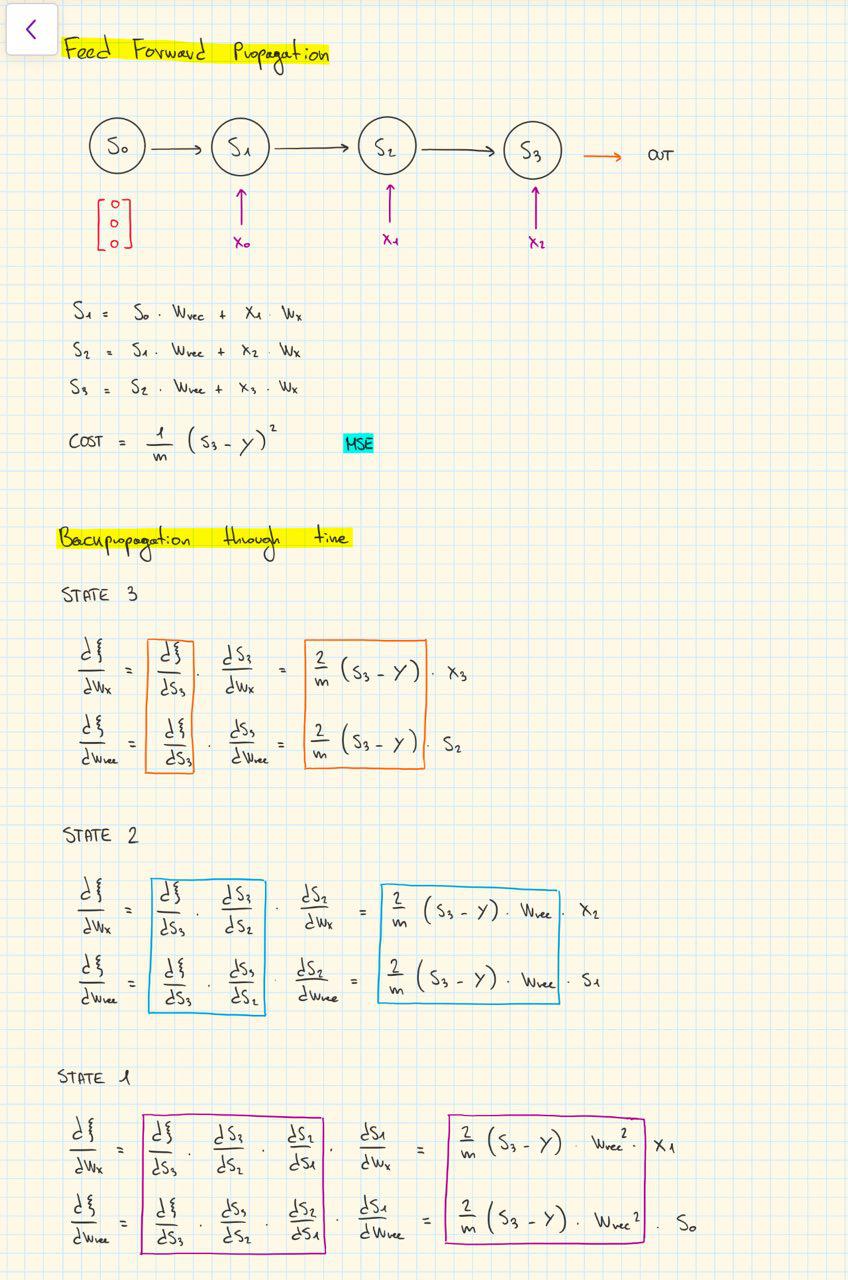 Feed Forward Propagation
S₀ → S₁ → S₂ → S₃ → OUT
[0 0 0] x₀ x₁ x₂
S₁ = S₀ · Wrec + x₁ · Wx
S₂ = S₁ · Wrec + x₂ · Wx
S₃ = S₂ · Wrec + x₃ · Wx
COST = 1/m (S₃ - y)² MSE
Backpropagation through time
STATE 3
dξ/dWx = dξ/dS₃ · dS₃/dWx = 2/m (S₃ - y) · x₃
dξ/dWrec = dξ/dS₃ · dS₃/dWrec = 2/m (S₃ - y) · S₂
STATE 2
dξ/dWx = dξ/dS₃ · dS₃/dS₂ · dS₂/dWx = 2/m (S₃ - y) · Wrec · x₂
dξ/dWrec = dξ/dS₃ · dS₃/dS₂ · dS₂/dWrec = 2/m (S₃ - y) · Wrec · S₁
STATE 1
dξ/dWx = dξ/dS₃ · dS₃/dS₂ · dS₂/dS₁ · dS₁/dWx = 2/m (S₃ - y) · Wrec² · x₁
dξ/dWrec = dξ/dS₃ · dS₃/dS₂ · dS₂/dS₁ · dS₁/dWrec = 2/m (S₃ - y) · Wrec² · S₀